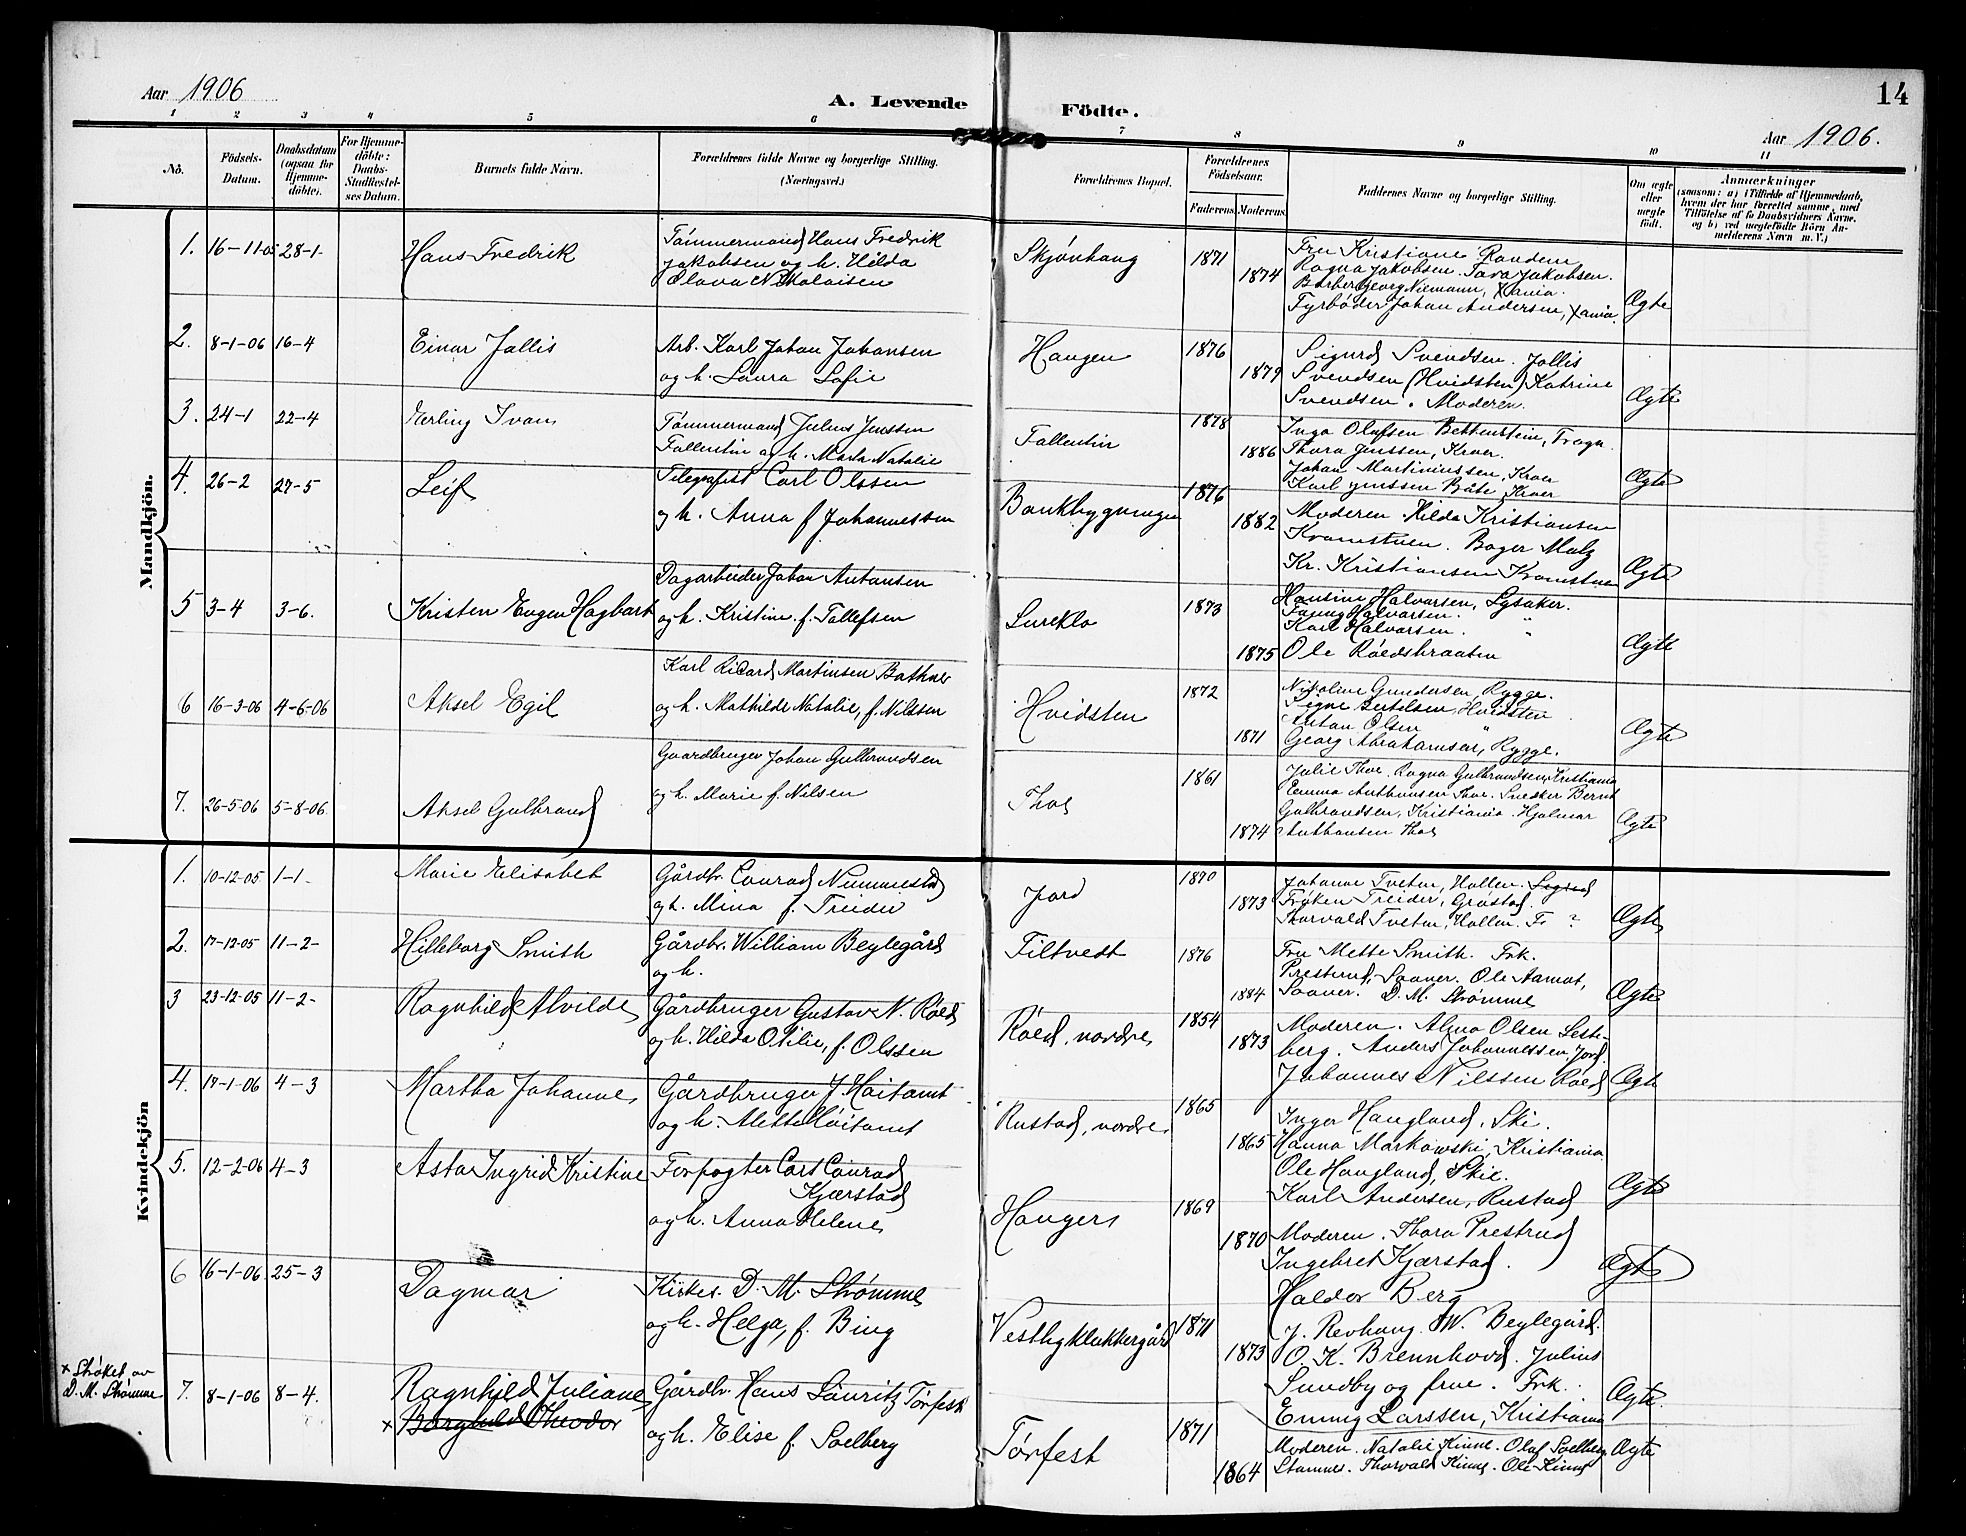 Aar 1906
A. Levende Födte.
14
Aar 1906.
1 2 3 4 5 6 7 8 9 10 11
No.
Födsels-Datum.
Daabsdatum (ogsaa for Hjemme-döbte).
For Hjemme-döbte: Daabs-Stadfæstel-ses Datum.
Barnets fulde Navn.
Forældrenes fulde Navne og borgerlige Stilling.
(Næringsvei.)
Forældrenes Bopæl.
Forældrenes Födselsaar.
Faderens. Moderens.
Faddernes Navne og borgerlige Stilling.
Om ægte eller uægte födt.
Anmærkninger
(saasom: a) i Tilfælde af Hjemmedaab, hvem der har forrettet samme, med Tilföielse af to Daabsvidners Navne, og b) ved uægtefödte Börn An-melderens Navn m. V.)
Mandkjön.
1. 16-11-05 28-1- Hans Fredrik
Tömmermand Hans Fredrik
Jakobsen og h. Hilda
Olava Nikolaisen
Skjønhaug 1871 1874
Fru Kristiane Randem
Ragna Jakobsen. Sara Jakobsen.
Barber Georg Niemann, Xania.
Fyrbøder Johan Andersen, Xania.
Ægte
2. 8-1-06 16-4 Einar Jallis
Arb. Karl Johan Johansen
og h. Laura Sofie
Haugen 1876 1879
Sigurd Svendsen. Jallis
Svendsen (Hvidsten) Katrine
Svendsen. Moderen.
Ægte
3. 24-1 22-4 Erling Ivan
Tømmermand Julius Jenssen
Fallentin og h. Marta Natalie
Fallentin 1878 1886
Inga Olafsen Bekkenstein, Frogn.
Thora Jenssen, Kroer.
Johan Martiniussen, Kroer
Karl Jenssen Båte Kroer
Ægte
4. 26-2 27-5 Leif
Telegrafist Carl Olssen
og h. Anna f. Johannessen
Bankbygningen 1876 1882
Moderen. Hilda Kristiansen
Kramstuen. Bager Malz
Kr. Kristiansen Kramstuen
Ægte
5 3-4 3-6. Kristen Eugen Hagbart
Dagarbeider Johan Antonsen
og h. Kristine f. Tollefsen
Surekla 1873 1875
Hansine Halvorsen, Lysaker.
Fanny Halvorsen.
Karl Halvorsen. "
Ole Røedsbraaten
Ægte
6 16-3-06 4-6-06 Aksel Egil
Karl Ricard Martinsen Bathner
og h. Mathilde Natalie, f. Nilssen
Hvidsten 1872 1871
Nikoline Gundersen, Rygge.
Signe Bertelsen, Hvidsten
Anton Olsen "
Georg Abrahamsen, Rygge.
Ægte
7. 26-5-06 5-8-06 Aksel Gulbrand
Gaardbruger Johan Gulbrandsen
og h. Marie f. Nilsen
Thor 1861 1874
Julie Thor. Ragna Gulbrandsen, Kristiania
Emma Anthonsen Thor. Snedker Bernt
Gulbrandsen, Kristiania. Hjalmar
Anthonsen Thor
Ægte
Kvindekjön
1. 10-12-05 1-1- Marie Elisabet
Gårdbr. Conrad Nummestad
og h. Mina f. Treider
Jord 1870 1873
Johanne Tveten, Hallen. Sigrid
Frøken Treider, Grøstad.
Thorvald Tveten, Hallen. Fr ?
Ægte
2. 17-12-05 11-2- Hilleborg Smith
Gårdbr. William Beylegård
og h.
Filtvedt 1876 1884
Fru Mette Smith. Frk.
Presterud, Saaner. Ole Aamot,
Saaner. D. M. Strømme
Ægte
3 23-12-05 11-2- Ragnhild Alvilde
Gårdbruger Gustav N. Røed
og h. Hilda Otilie, f. Olssen
Røed, nordre 1854 1873
Moderen. Alma Olsen Seste-
berg. Anders Johannessen Jord.
Johannes Nilssen Røed
Ægte
4. 17-1-06 4-3 Martha Johanne
Gårdbruger J. Høitomt
og h. Mette Høitomt
Rustad, nordre 1865 1865
Inger Haugland, Ski.
Hanna Markowski, Kristiania
Ole Haugland, Ski.
Karl Andersen, Rustad
Ægte
5. 12-2-06 4-3 Asta Ingrid Kristine
Forpagter Carl Conrad
Kjærstad
og h. Anna Helene
Hanger 1869 1870
Moderen. Thora Prestrud
Ingebret Kjærstad.
Haldor Berg
Ægte
6 16-1-06 25-3 Dagmar
Kirkes. D. M. Strømme
og h. Helga, f. Bing
Vestby klokkergård 1871 1873
J. Revhaug. W. Beylegård.
O. K. Brennhovd. Julius
Sundby og frue. Frk.
Emmy Larssen, Kristiania
Ægte
x Strøket av
D. M. Strømme
7. 8-1-06 8-4. Ragnhild Juliane
x Borghild Theodor
Gårdbr. Hans Lauritz Tørfest
og h. Elise f. Solberg
Tørfest 1871 1864
Moderen. Natalie Kinne. Olaf Solberg
Stamnes. Thorvald Kinne. Ole Kinne
Ægte